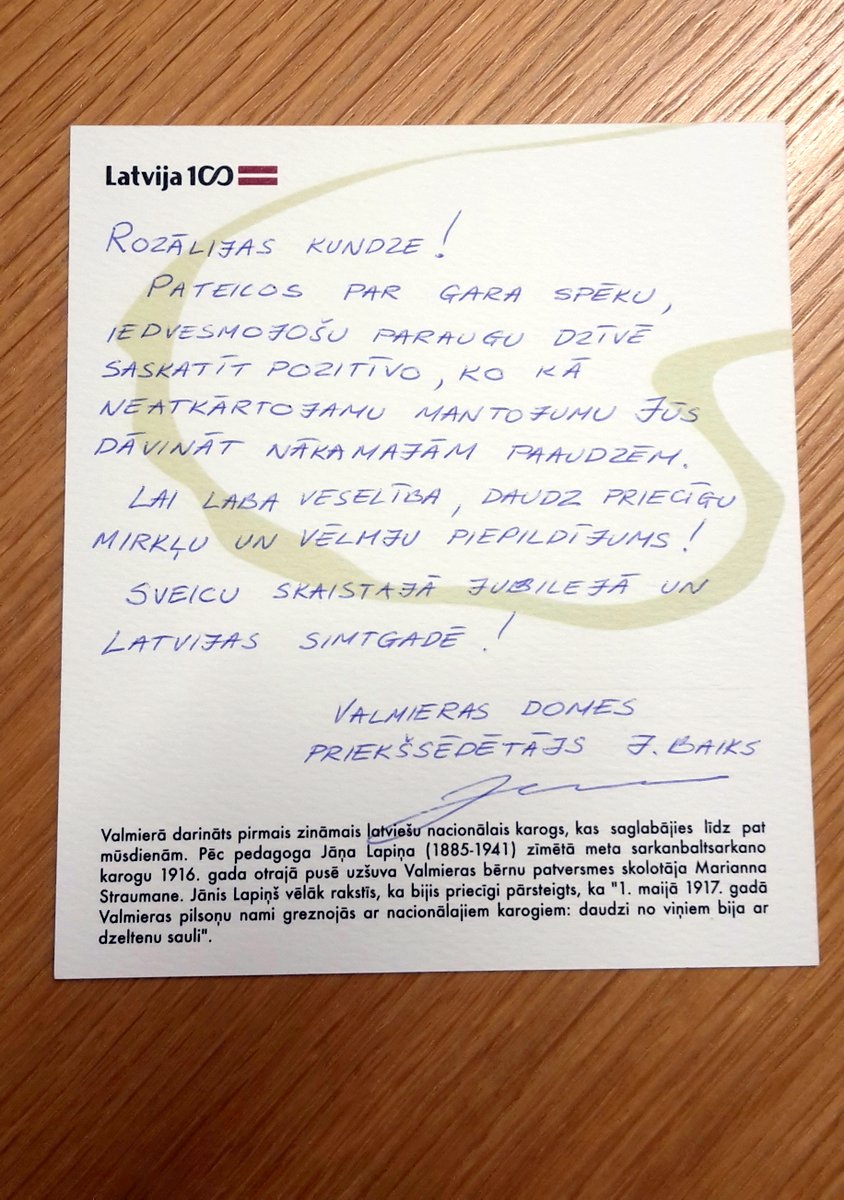 Latvija 100
ROZĀLIJAS KUNDZE!
PATEICOS PAR GARA SPĒKU,
IEDVESMOJOŠU PARAUGU DZĪVĒ
SASKATĪT POZITĪVO, KO KĀ
NEATKĀRTOJAMU MANTOJUMU JŪS
DĀVINĀT NĀKAMAJĀM PAAUDZĒM.
LAI LABA VESELĪBA, DAUDZ PRIECĪGU
MIRKĻU UN VĒLMJU PIEPILDĪJUMS!
SVEICU SKAISTAJĀ JUBILEJĀ UN
LATVIJAS SIMTGADĒ!
VALMIERAS DOMES
PRIEKŠSĒDĒTĀJS J. BAIKS
Valmierā darināts pirmais zināmais latviešu nacionālais karogs, kas saglabājies līdz pat
mūsdienām. Pēc pedagoga Jāņa Lapiņa (1885-1941) zīmētā meta sarkanbaltsarkano
karogu 1916. gada otrajā pusē uzšuva Valmieras bērnu patversmes skolotāja Marianna
Straumane. Jānis Lapiņš vēlāk rakstīs, ka bijis priecīgi pārsteigts, ka "1. maijā 1917. gadā
Valmieras pilsoņu nami greznojās ar nacionālajiem karogiem: daudzi no viņiem bija ar
dzeltenu sauli".